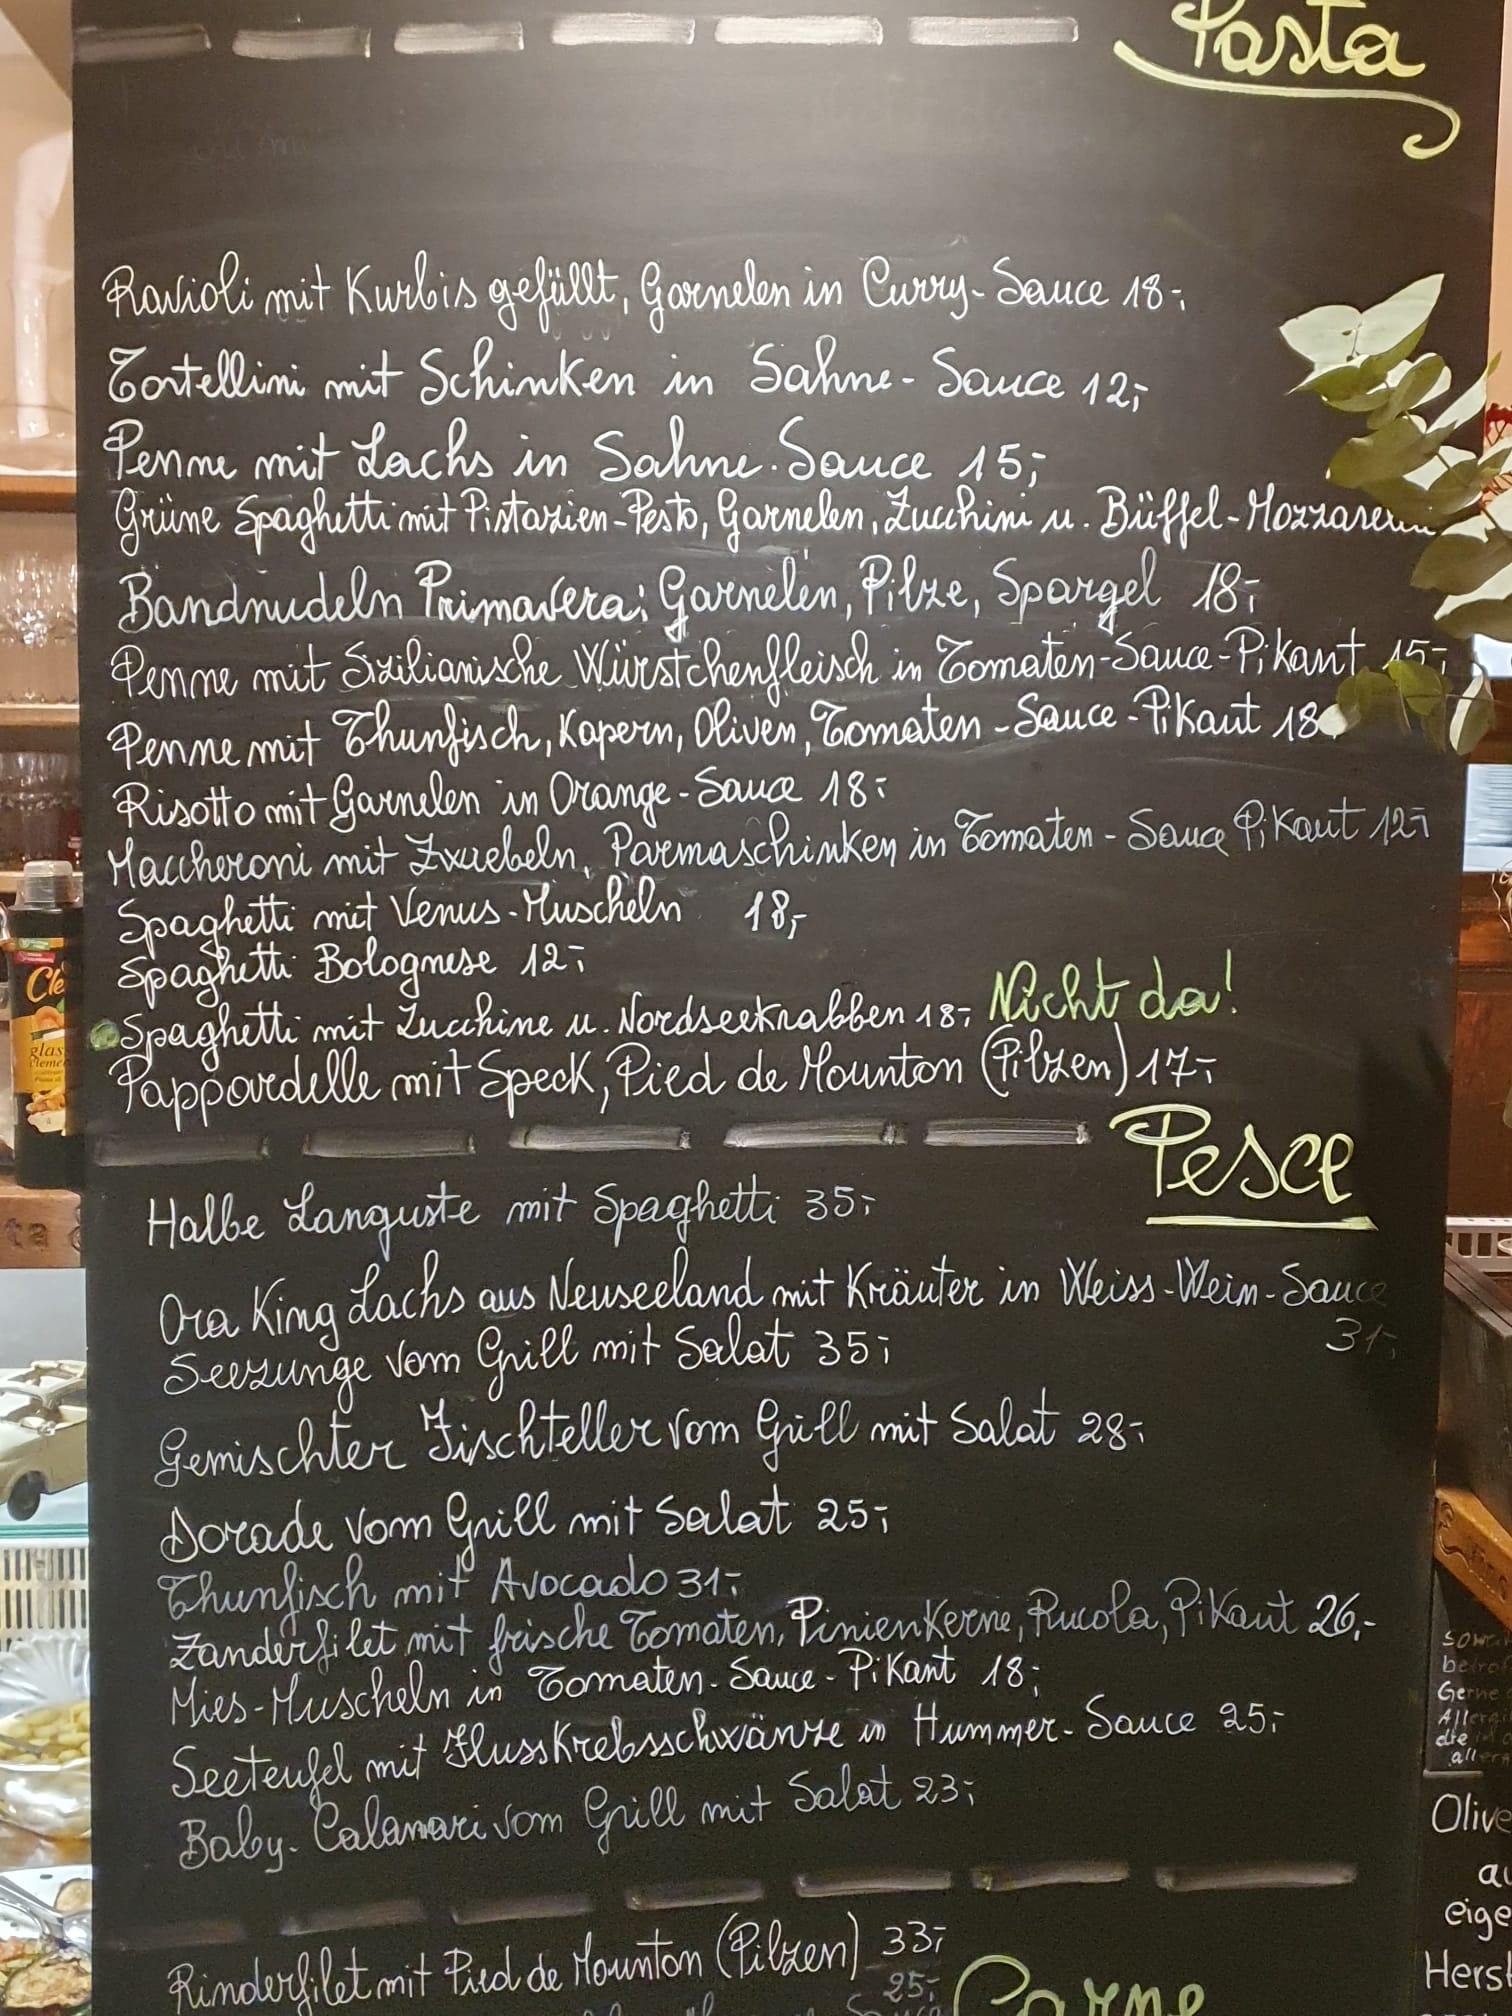 Pasta
Ravioli mit Kurbis gefüllt, Garnelen in Curry-Sauce 18-,
Tortellini mit Schinken in Sahne-Sauce 12,-
Penne mit Lachs in Sahne-Sauce 15,-
Grüne Spaghetti mit Pistazien-Pesto, Garnelen, Zucchini u. Büffel-Mozzarella
Bandnudeln Primavera; Garnelen, Pilze, Spargel 18,-
Penne mit Sizilianische Würstchenfleisch in Tomaten-Sauce-Pikant 15,-
Penne mit Thunfisch, Kapern, Oliven, Tomaten-Sauce-Pikant 18
Risotto mit Garnelen in Orange-Sauce 18,-
Maccheroni mit Zwiebeln, Parmaschinken in Tomaten-Sauce Pikant 12,-
Spaghetti mit Venus-Muscheln 18,-
Spaghetti Bolognese 12,-
Spaghetti mit Zucchine u. Nordseeknabben 18,- Nicht da!
Pappardelle mit Speck, Pied de Mounton (Pilzen) 17,-
Pesce
Halbe Languste mit Spaghetti 35,-
Ora King Lachs aus Neuseeland mit Kräuter in Weiss-Wein-Sauce
31,-
Seezunge vom Grill mit Salat 35,-
Gemischter Fischteller vom Grill mit Salat 28,-
Dorade vom Grill mit Salat 25,-
Thunfisch mit Avocado 31,-
Zanderfilet mit frische Tomaten, Pinienkerne, Rucola, Pikant 26,-
Mies-Muscheln in Tomaten-Sauce-Pikant 18,-
Seeteufel mit Flusskrebsschwänze in Hummer-Sauce 25,-
Baby-Calamari vom Grill mit Salat 23,-
Rinderfilet mit Pied de Mounton (Pilzen) 33,-
25,-
Carne
Olive
eige
Herst